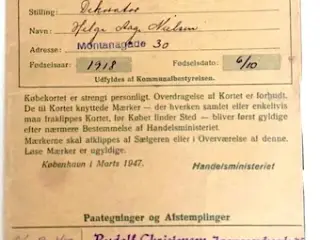 Stilling: Dekoratør
Navn: Helge Aage Nielsen
Adresse: Montanagade 30
Fødselsaar: 1918 Fødselsdato: 6/10
Udfyldes af Kommunalbestyrelsen.
Købekortet er strengt personligt. Overdragelse af Kortet er forbudt.
De til Kortet knyttede Mærker - der hverken samlet eller enkeltvis
maa fraklippes Kortet, før Købet finder Sted - bliver først gyldige
efter nærmere Bestemmelse af Handelsministeriet.
Mærkerne skal afklippes af Sælgeren eller i Overværelse af denne.
Løse Mærker er ugyldige.
København i Marts 1947. Handelsministeriet
Paategninger og Afstemplinger
Rudolf Christensen